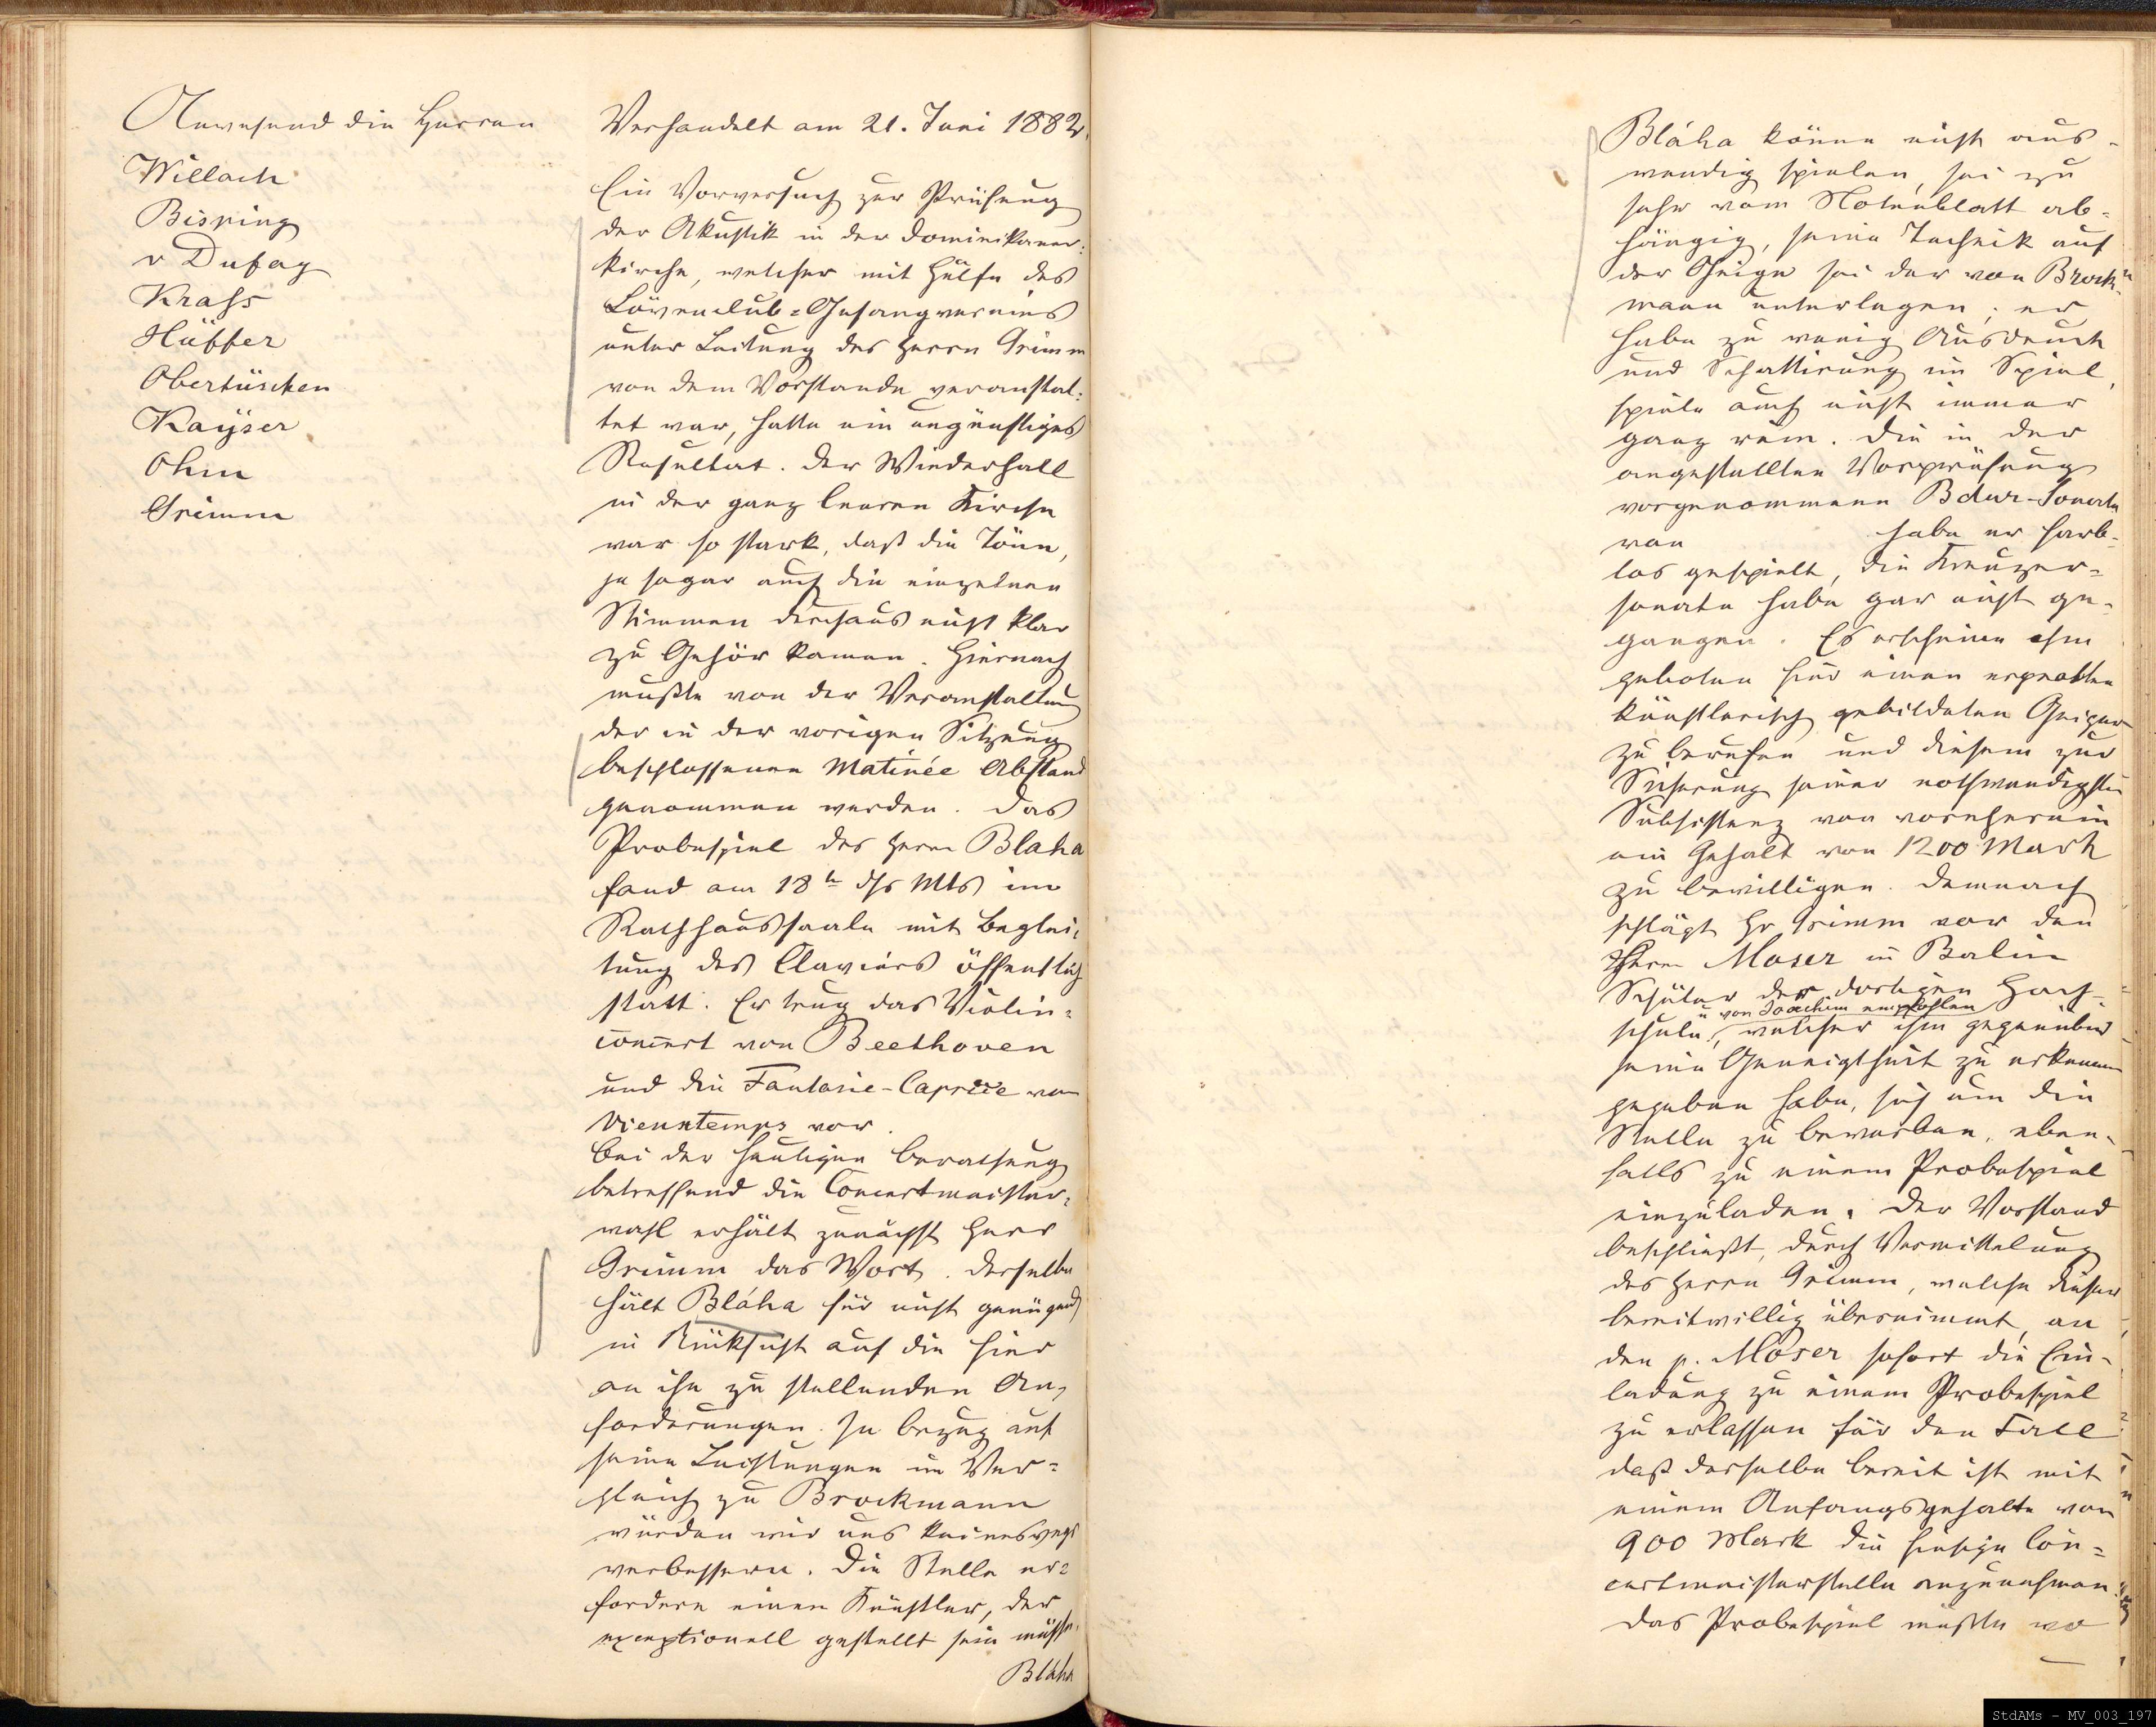 Anwesend die Herren
Willach
Bisping
v Dufay
Krass
Hüffer
Obertüschen
Kayser
Ohm
Grimm
Verhandelt am 21. Juni 1882.
Ein Vorversuch zur Prüfung
der Akustik in der Dominikaner-
kirche, welcher mit Hülfe des
Löwenclub-Gesangvereins
unter Leitung des Herrn Grimm
von dem Vorstande veranstal-
tet war, hatte ein ungünstiges
Resultat. Der Wiederhall
in der ganz leeren Kirche
war so stark, daß die Töne,
ja sogar auch die einzelnen
Stimmen durchaus nicht klar
zu Gehör kamen. Hiernach
mußte von der Veranstaltung
der in der vorigen Sitzung
beschlossenen Matinée Abstand
genommen werden. Das
Probespiel des Herrn Blaha
fand am 18t. ds Mts im
Rathhaussaale mit Beglei-
tung des Claviers öffentlich
statt. Er trug das Violin-
concert von Beethoven
und die Fantasie-Caprice von
Vieuxtemps vor.
Bei der heutigen Berathung
betreffend die Concertmeister-
wahl erhält zunächst Herr
Grimm das Wort. Derselbe
hält Bláha für nicht genügend
in Rücksicht auf die hier
an ihn zu stellenden An-
forderungen. In Bezug auf
seine Leistungen im Ver-
gleich zu Brockmann
würden wir uns keineswegs
verbessern. Die Stelle er-
fordere einen Künstler, der
exceptionell gestellt sein müsse.
Bláha
Bláha könne nicht aus-
wendig spielen, sei zu
sehr vom Notenblatt ab-
hängig, seine Technik auf
der Geige sei der von Brock-
mann unterlegen; er
habe zu wenig Ausdruck
und Schattirung im Spiel,
spiele auch nicht immer
ganz rein. Die in der
angestellten Vorprüfung
vorgenommene Bdur-Sonate
von habe er farb-
los gespielt, die Kreuzer-
sonate habe gar nicht ge-
gangen. Es erscheine ihm
geboten hier einen erprobten
künstlerisch gebildeten Geiger
zu berufen und diesem zur
Sicherung seiner nothwendigsten
Subsistenz von vornherein
ein Gehalt von 1200 Mark
zu bewilligen. Demnach
schlägt Hr Grimm vor den
Herrn Moser in Berlin
Schüler der dortigen Hoch-
u von Joachim empfohlen
schule, welcher ihm gegenüber
seine Geneigtheit zu erkennen
gegeben habe, sich um die
Stelle zu bewerben, eben-
falls zu einem Probespiel
einzuladen. Der Vorstand
beschließt, durch Vermittelung
des Herrn Grimm, welche dieser
bereitwillig übernimmt, an
den p. Moser sofort die Ein-
ladung zu einem Probespiel
zu erlassen für den Fall
daß derselbe bereit ist mit
einem Anfangsgehalte von
900 Mark die hiesige Con-
certmeisterstelle anzunehmen.
Das Probespiel müßte wo
StdAMs - MV_003_197